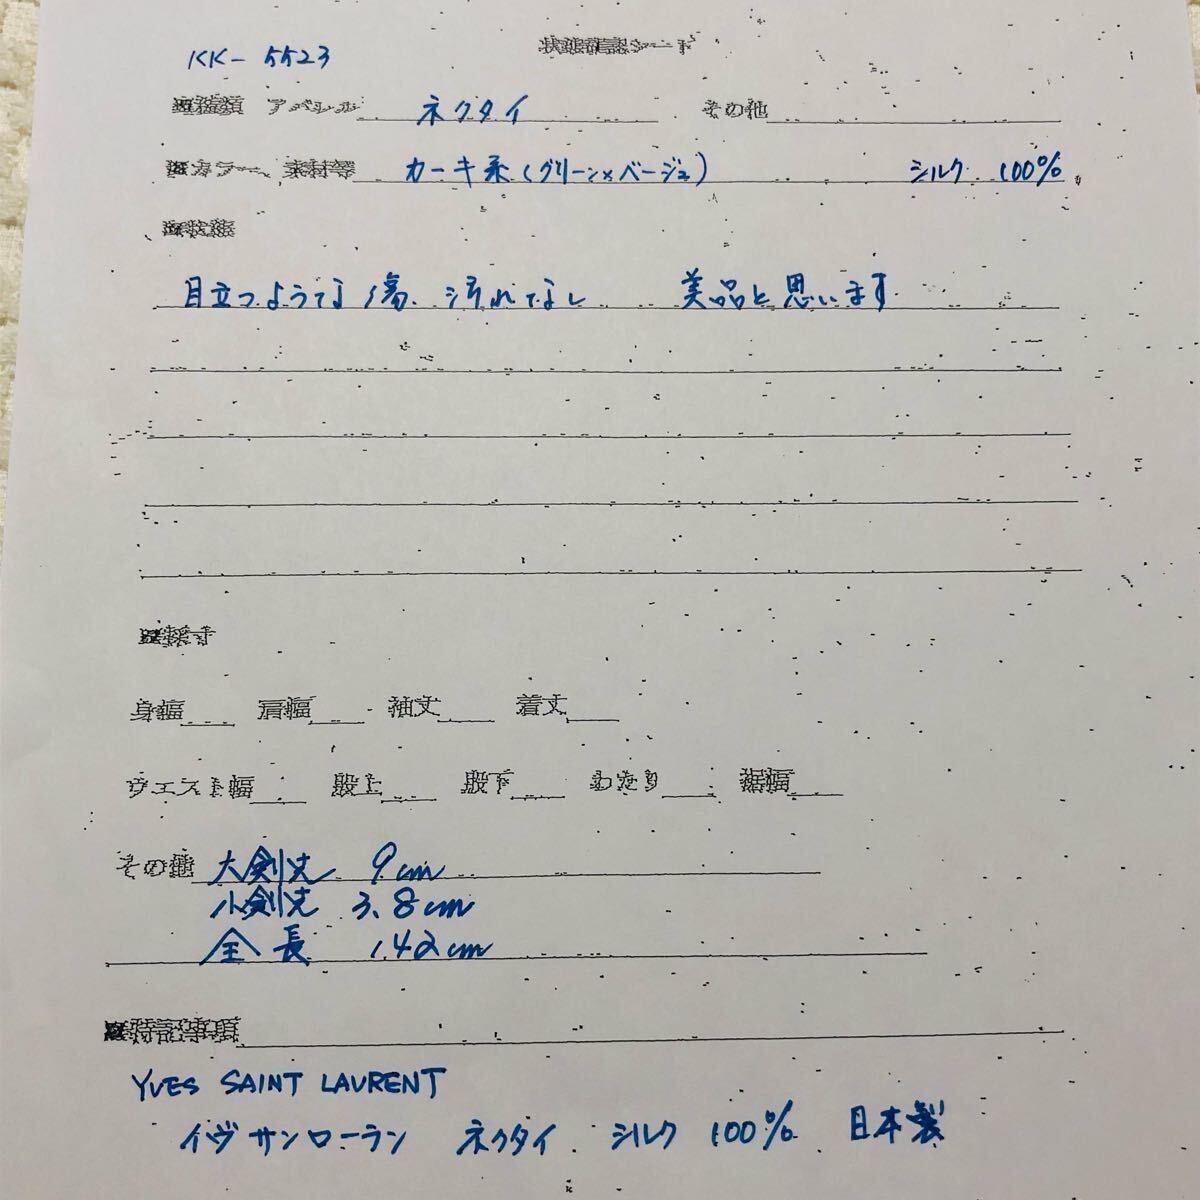 状態確認シート
KK-5523
■種類 アパレル ネクタイ その他
■カラー、素材等 カーキ系(グリーン×ベージュ) シルク 100%
■状態
目立つような傷、汚れなし 美品と思います
■採寸
身幅 肩幅 袖丈 着丈
ウエスト幅 股上 股下 わたり 裾幅
その他 大剣先 9cm
小剣先 3.8cm
全長 142cm
■特記事項
YVES SAINT LAURENT
イヴサンローラン ネクタイ シルク 100% 日本製